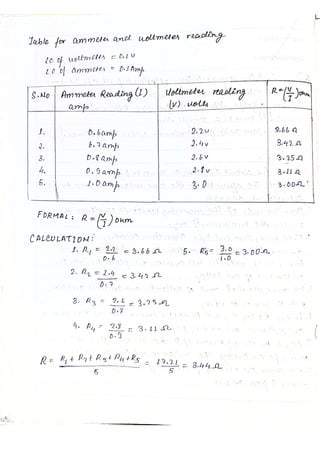 Table for ammeter and voltmeter reading
LC of voltmeter = 0.1 V
LC of Ammeter = 0.1 Amp
S.No Ammeter Reading (I) amp. Voltmeter reading (V) volts R=(V/I) ohm
1. 0.6amp 2.2v 3.66 Ω
2. 0.7amp 2.4v 3.42 Ω
3. 0.8amp 2.6v 3.25 Ω
4. 0.9amp 2.8v 3.11 Ω
5. 1.0amp 3.0 3.00Ω
FORMAL: R = (V/I) ohm
CALCULATION:
1. R1 = 2.2/0.6 = 3.66 Ω 5. R5 = 3.0/1.0 = 3.00Ω
2. R2 = 2.4/0.7 = 3.42 Ω
3. R3 = 2.6/0.8 = 3.25 Ω
4. R4 = 2.8/0.9 = 3.11 Ω
R = R1 + R2 + R3 + R4 + R5/5 = 17.21/5 = 3.44 Ω